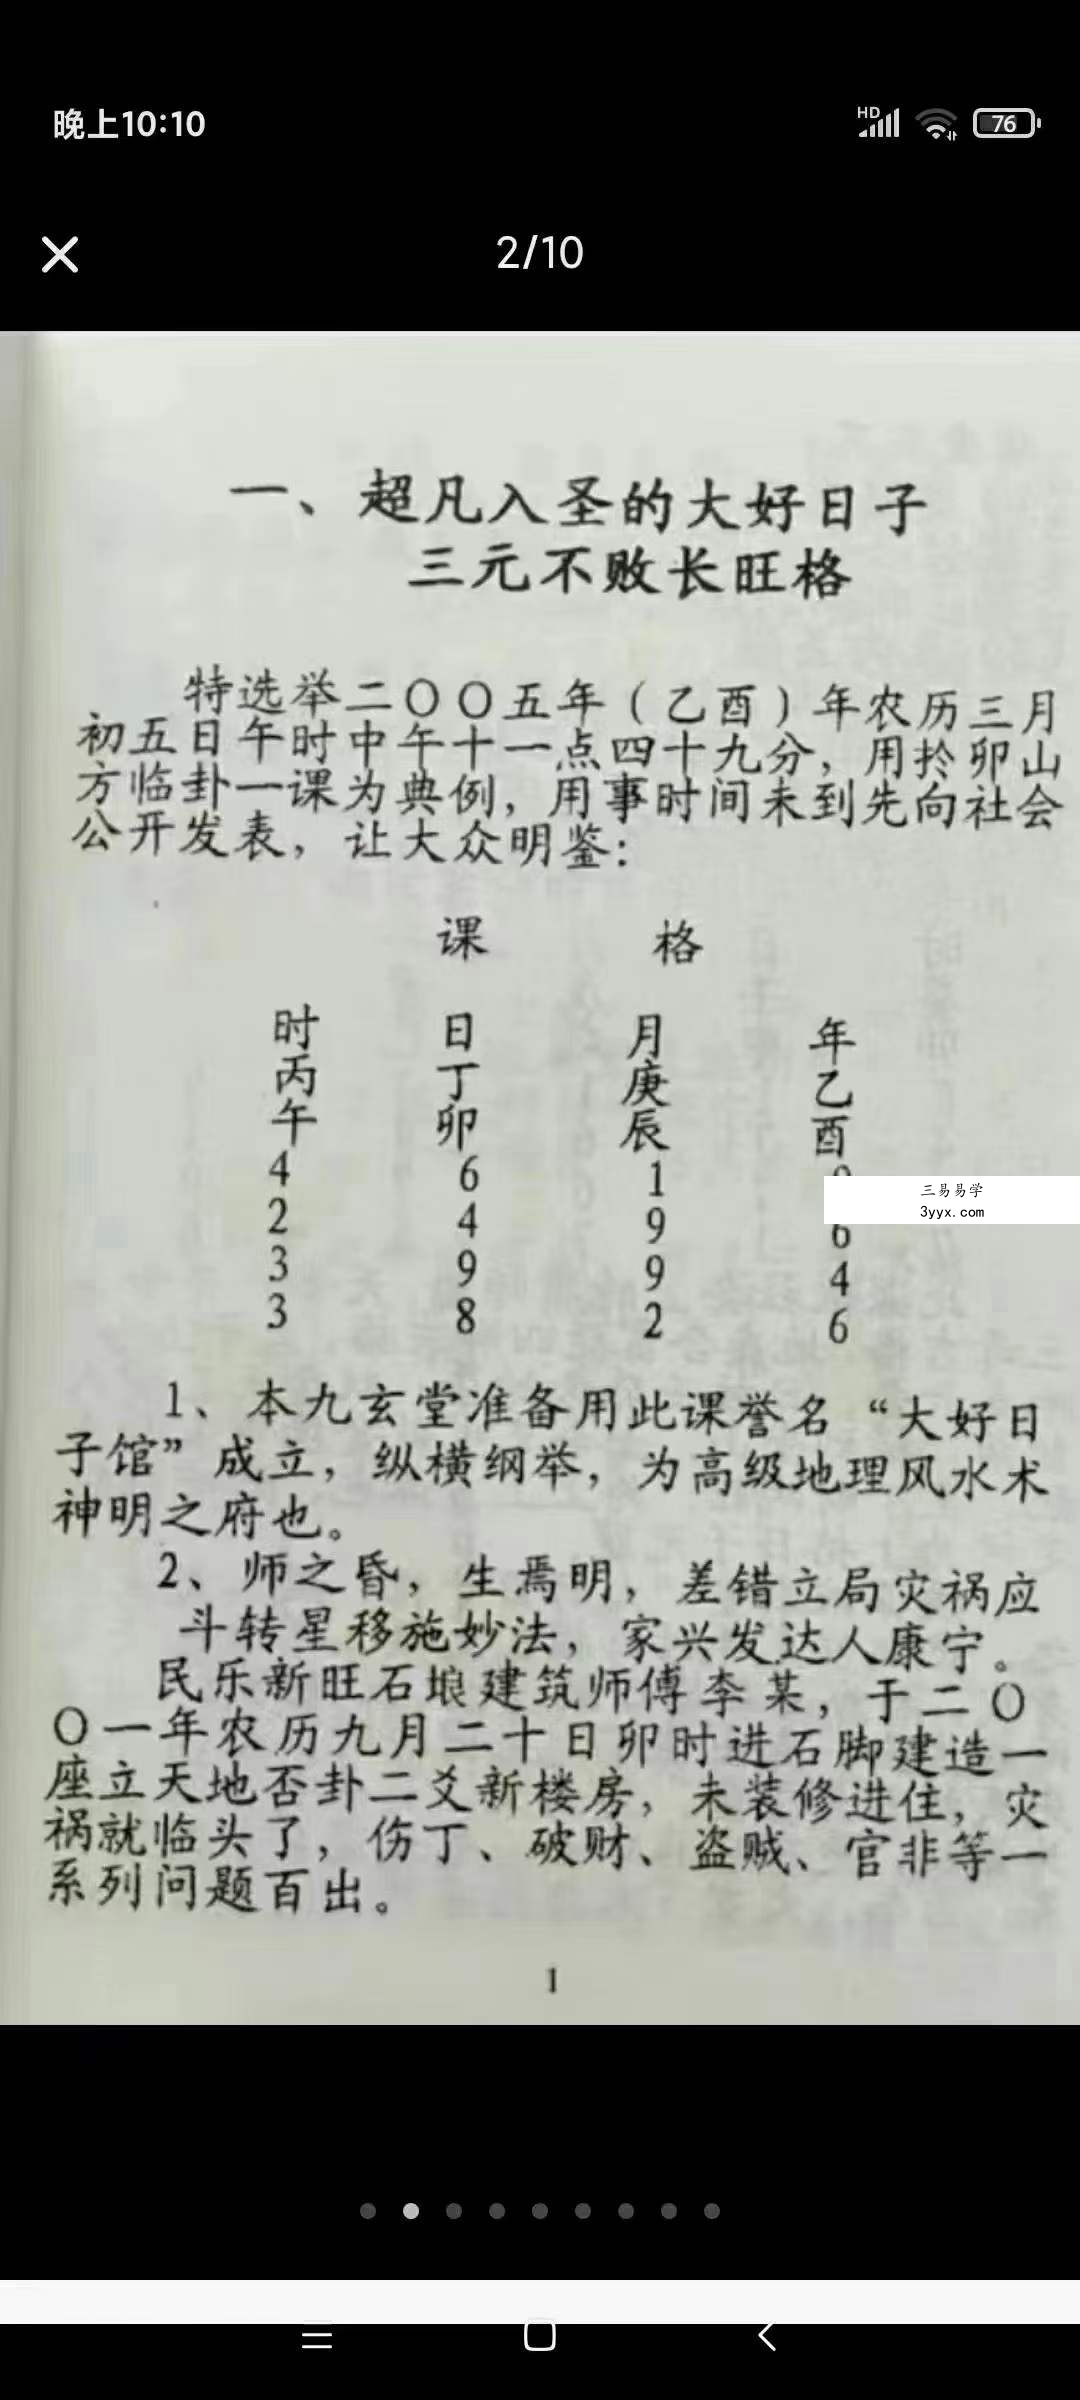 晚上10:10
HD
76
2/10
一、超凡入圣的大好日子
三元不败长旺格
特选举二〇〇五年（乙酉）年农历三月
初五日午时中午十一点四十九分，用拎卯山
方临卦一课为典例，用事时间未到先向社会
公开发表，让大众明鉴：
课 格
时 日 月 年
丙 丁 庚 乙
午 卯 辰 酉
4 6 1
2 4 9 6
3 9 9 4
3 8 2 6
三易易学
3yyx.com
1、本九玄堂准备用此课誉名“大好日
子馆”成立，纵横纲举，为高级地理风水术
神明之府也。
2、师之昏，生焉明，差错立局灾祸应
斗转星移施妙法，家兴发达人康宁。
民乐新旺石埌建筑师傅李某，于二〇
〇一年农历九月二十日卯时进石脚建造一
座立天地否卦二爻新楼房，未装修进住，灾
祸就临头了，伤丁、破财、盗贼、官非等一
系列问题百出。
1